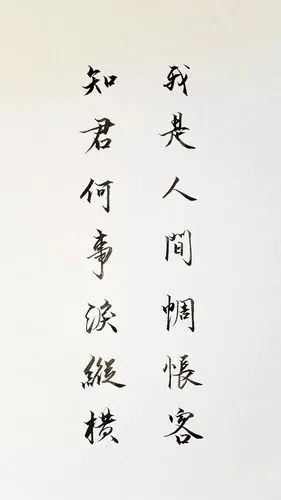 我是人間惆悵客
知君何事淚縱橫